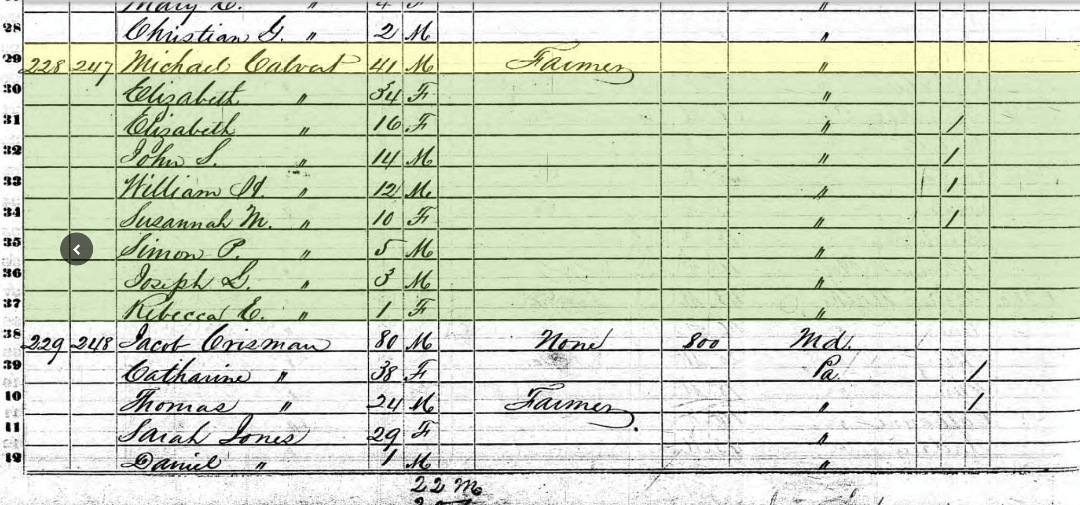 Mary C. " 4 F "
28 Christian G. " 2 M "
29 228 247 Michael Calvert 41 M Farmer "
30 Elizabeth " 34 F "
31 Elizabeth " 16 F " /
32 John S. " 14 M " /
33 William H " 12 M " /
34 Susannah M. " 10 F " /
35 Simon P. " 5 M "
36 Joseph G. " 3 M "
37 Rebecca E. " 1 F "
38 229 248 Jacob Crisman 80 M None 800 Md.
39 Catharine " 38 F Pa. /
40 Thomas " 24 M Farmer " /
41 Sarah Jones 29 F "
42 Daniel " 1 M "
22 M